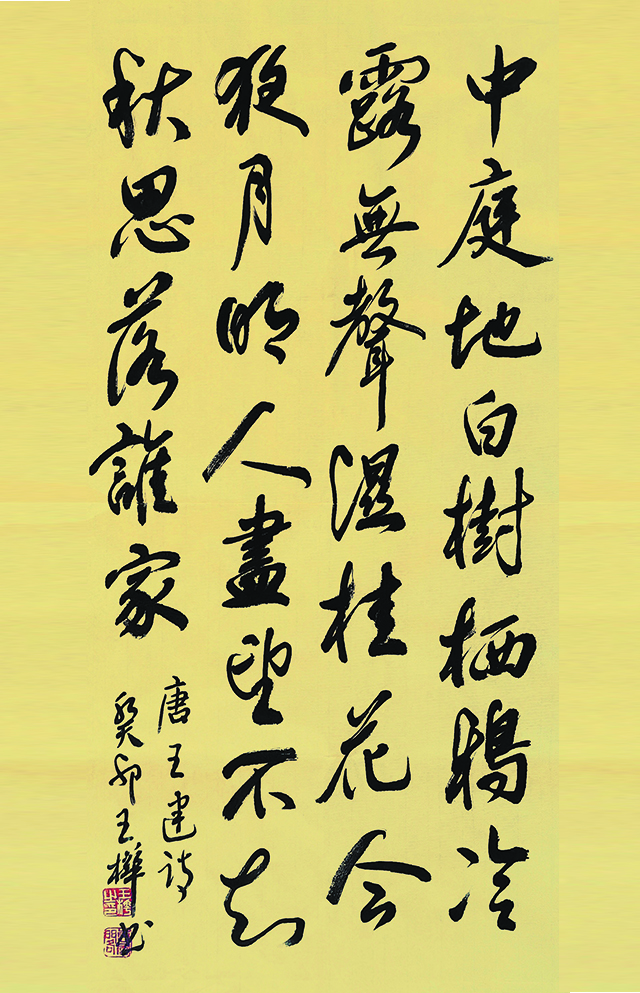 中庭地白樹栖鴉冷
露無聲濕桂花今
夜月明人盡望不知
秋思落誰家
唐王建詩
癸卯王樺书